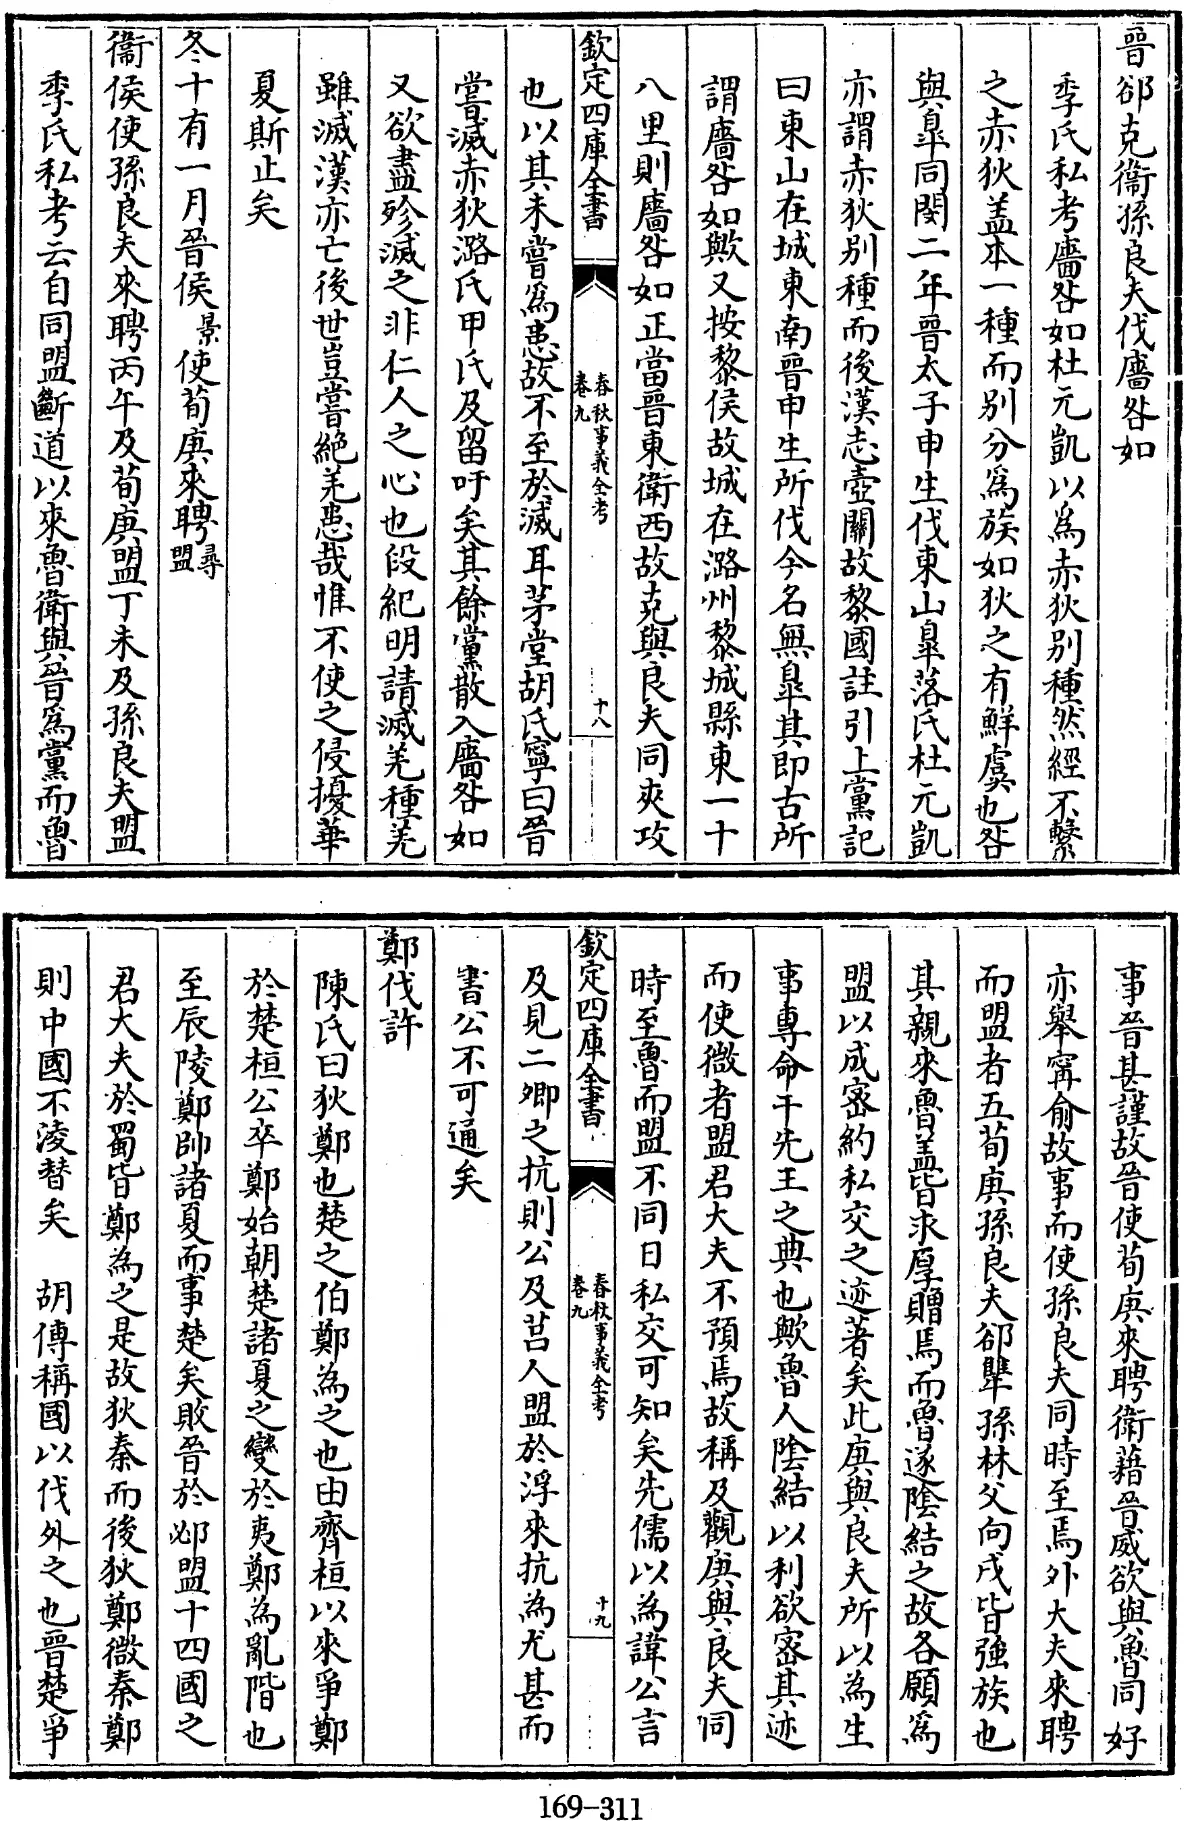 晉郤克衞孫良夫伐廧咎如
季氏私考廧咎如杜元凱以為赤狄别種然經不繫
之赤狄盖本一種而别分為族如狄之有鮮虞也咎
與臯同閔二年晉太子申生伐東山臯落氏杜元凱
亦謂赤狄别種而後漢志壺關故黎國註引上黨記
曰東山在城東南晉申生所伐今名無臯其即古所
謂廧咎如歟又按黎侯故城在潞州黎城縣東一十
八里則廧咎如正當晉東衛西故克與良夫同夾攻
欽定四庫全書
春秋事義全考
卷九
十八
也以其未嘗為患故不至於滅耳茅堂胡氏寧曰晉
嘗滅赤狄潞氏甲氏及留吁矣其餘黨散入廧咎如
又欲盡殄滅之非仁人之心也段紀明請滅羌種羌
雖滅漢亦亡後世豈嘗絶羌患哉惟不使之侵擾華
夏斯止矣
冬十有一月晉侯景使荀庚來聘尋盟
衞侯使孫良夫來聘丙午及荀庚盟丁未及孫良夫盟
季氏私考云自同盟斷道以來魯衛與晉為黨而魯
事晉甚謹故晉使荀庚來聘衛藉晉威欲與魯同好
亦舉甯俞故事而使孫良夫同時至焉外大夫來聘
而盟者五荀庚孫良夫郤犫孫林父向戌皆強族也
其親來魯盖皆求厚贈焉而魯遂隂結之故各願為
盟以成密約私交之迹著矣此庚與良夫所以為生
事專命干先王之典也歟魯人隂結以利欲密其迹
而使微者盟君大夫不預焉故稱及觀庚與良夫同
時至魯而盟不同日私交可知矣先儒以為諱公言
欽定四庫全書
春秋事義全考
卷九
十九
及見二卿之抗則公及莒人盟於浮來抗為尤甚而
書公不可通矣
鄭伐許
陳氏曰狄鄭也楚之伯鄭為之也由齊桓以來爭鄭
於楚桓公卒鄭始朝楚諸夏之變於夷鄭為亂階也
至辰陵鄭帥諸夏而事楚矣敗晉於邲盟十四國之
君大夫於蜀皆鄭為之是故狄秦而後狄鄭微秦鄭
則中國不淩替矣　胡傳稱國以伐外之也晉楚爭
169-311